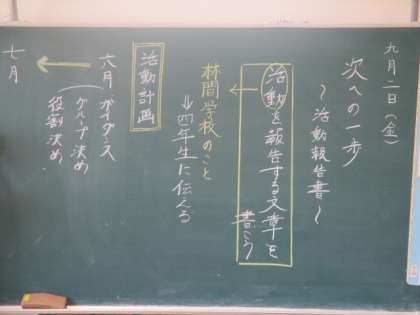 九月一日（金）
次への一歩
～活動報告書～
活動を報告する文章を
書こう
林間学校のこと
↓四年生に伝える
活動計画
六月 ガイダンス
グループ決め
役割決め
七月